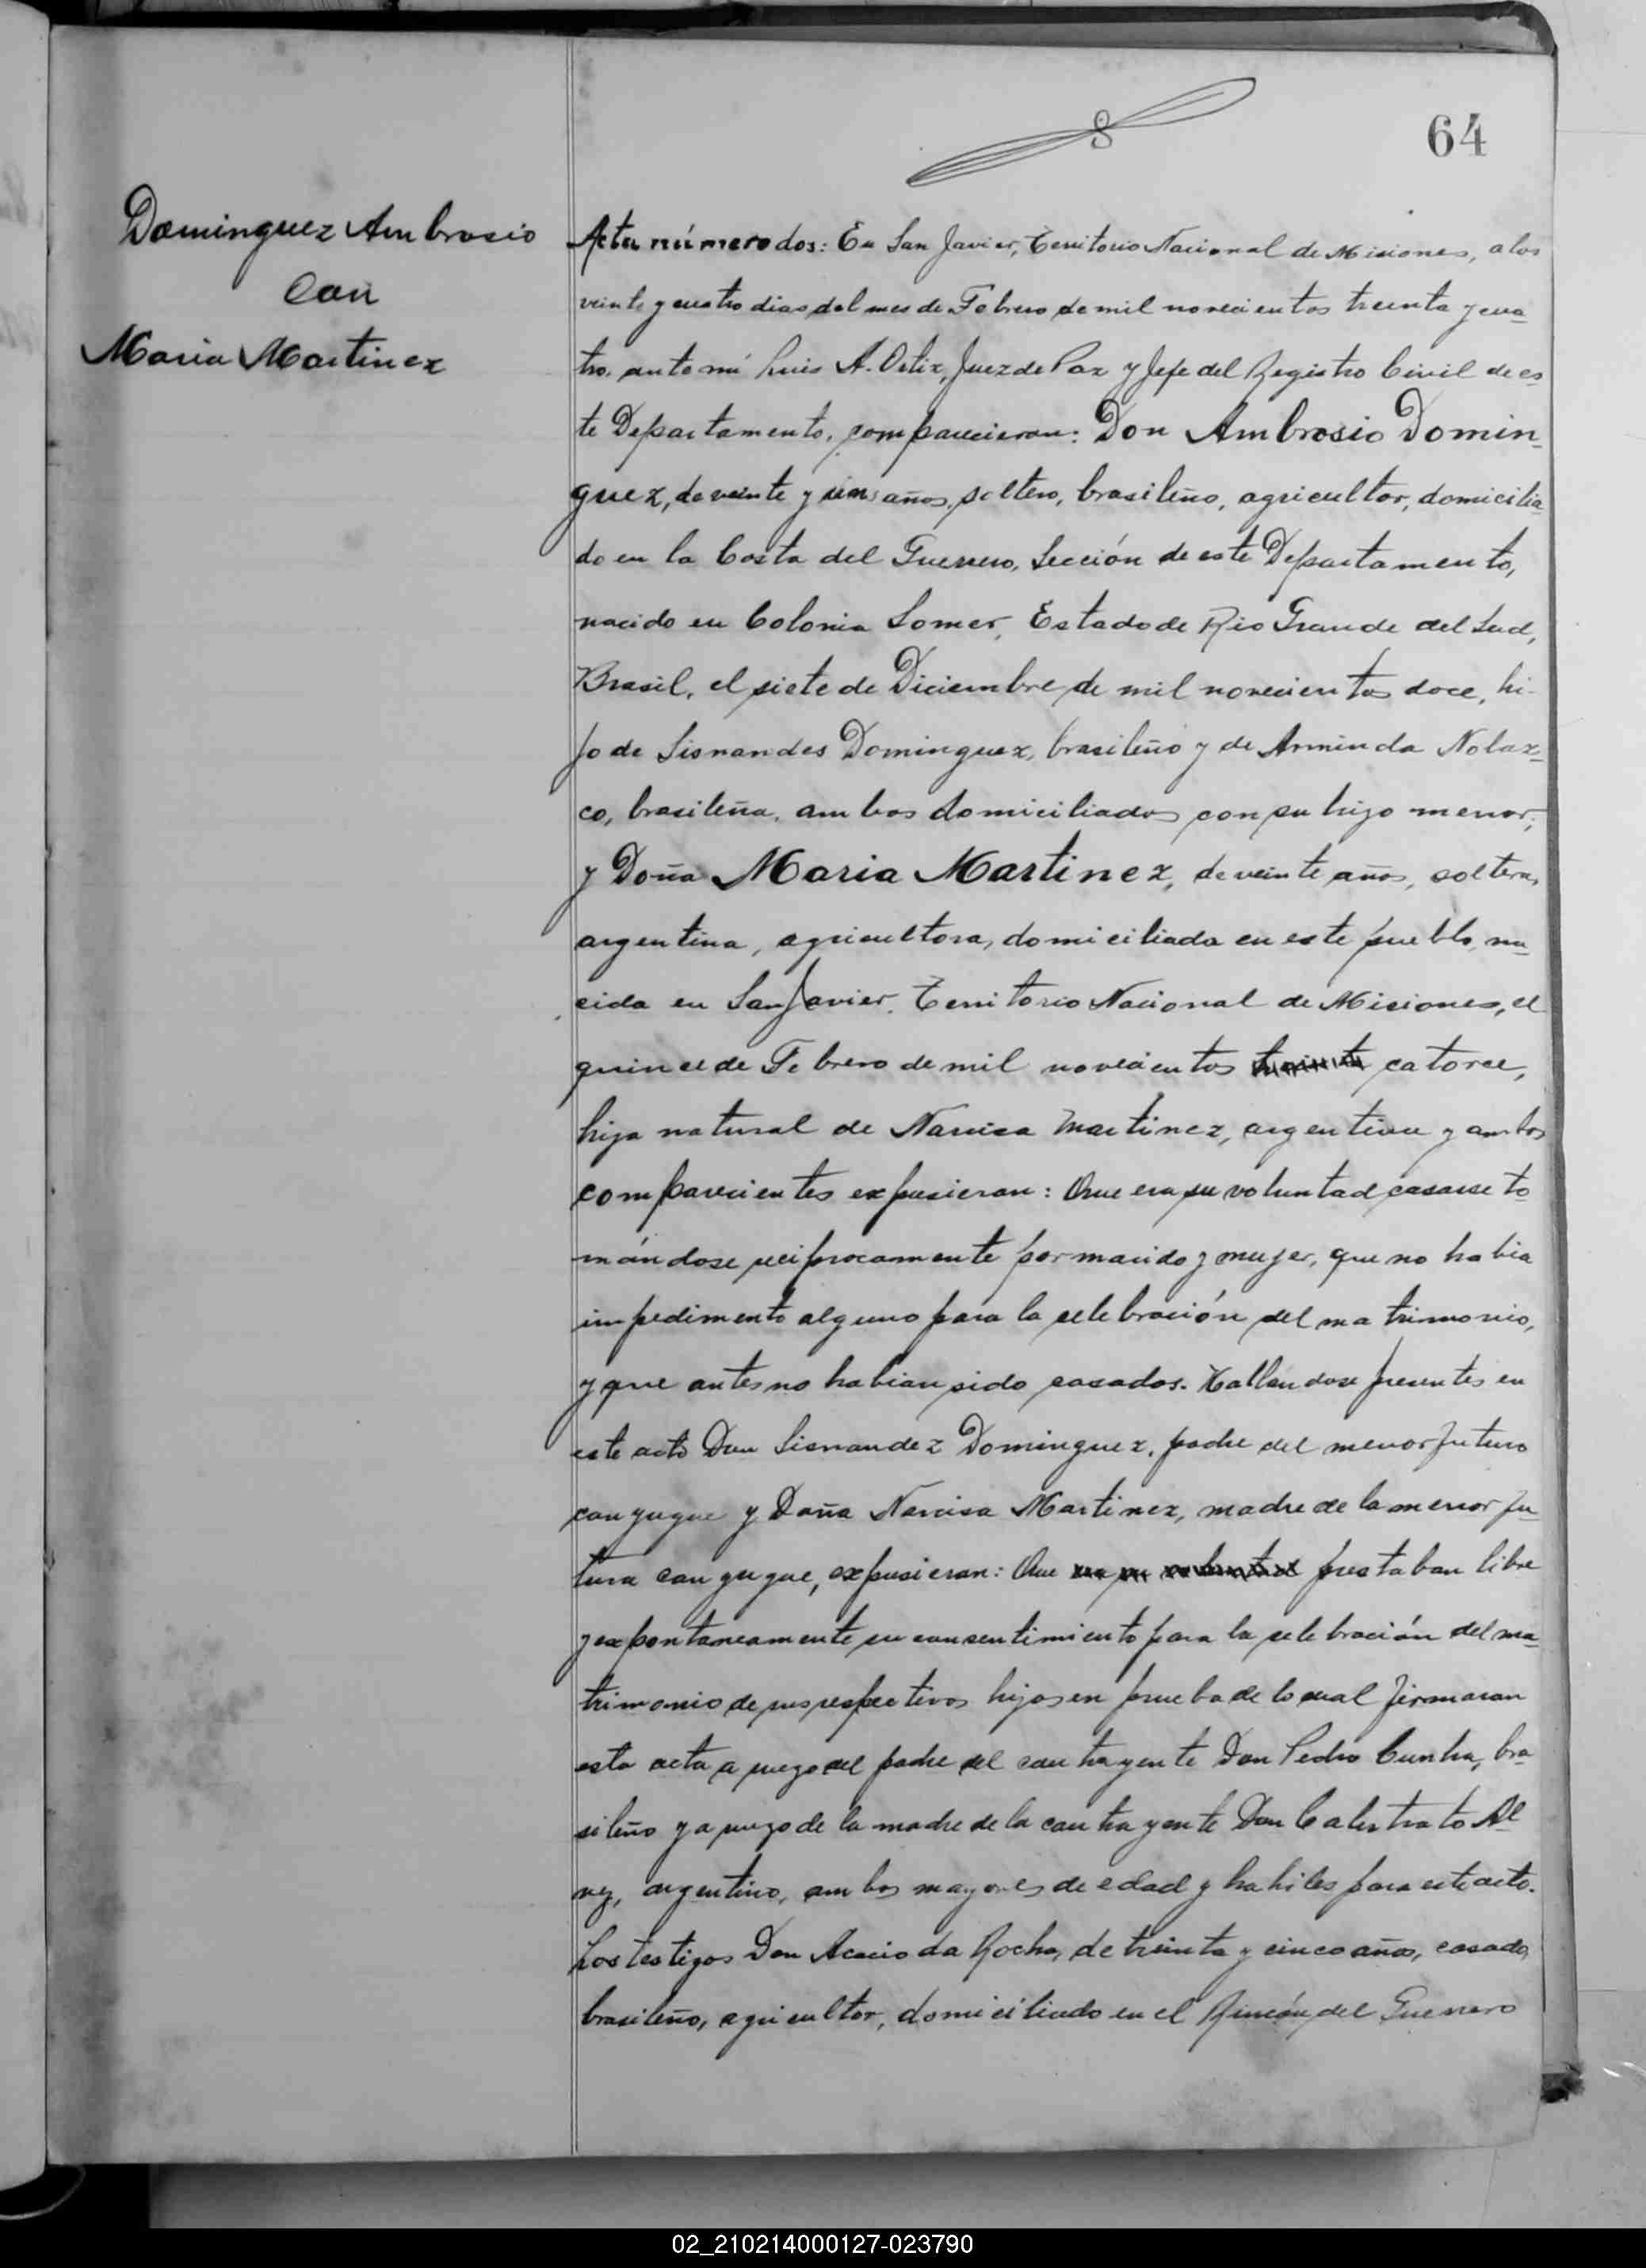 64
Dominguez Ambrosio
con
Maria Martinez
Acta número dos: En San Javier, Territorio Nacional de Misiones, a los
veinte y cuatro dias del mes de Febrero de mil novecientos treinta y cua-
tro, ante mi Luis A. Ortiz, Juez de Paz y Jefe del Registro Civil de es-
te Departamento, comparecieron: Don Ambrosio Domin-
guez, de veinte y años, soltero, brasileño, agricultor, domicilia-
do en la Costa del Guerrero, Sección de este Departamento,
nacido en Colonia Somer, Estado de Rio Grande del Sud,
Brasil, el siete de Diciembre de mil novecientos doce, hi-
jo de Sisnandes Dominguez, brasileño y de Arminda Nolaz-
co, brasileña, ambos domiciliados con su hijo menor;
y Doña Maria Martinez, de veinte años, soltera,
argentina, agricultora, domiciliada en este pueblo, na-
cida en San Javier, Territorio Nacional de Misiones, el
quince de Febrero de mil novecientos catorce,
hija natural de Narcisa Martinez, argentina y ambos
comparecientes expusieron: Que era su voluntad casarse to-
mándose reciprocamente por marido y mujer, que no habia
impedimento alguno para la celebración del matrimonio,
y que antes no habian sido casados. Hallandose presentes en
este acto Don Sisnandez Dominguez, padre del menor futuro
conyugue y Doña Narcisa Martinez, madre de la menor fu-
tura conyugue, expusieron: Que era su voluntad prestaban libre
y expontaneamente su consentimiento para la celebración del ma-
trimonio de sus respectivos hijos en prueba de lo cual firmaran
esta acta a ruego del padre del contrayente Don Pedro Cunha, bra-
sileño y a ruego de la madre de la contrayente Don Calistrato Al-
vez, argentino, ambos mayores de edad y habiles para este acto.
Los testigos Don Acacio da Rocha, de treinta y cinco años, casado,
brasileño, agricultor, domiciliado en el Rincón del Guerrero
02_210214000127-023790